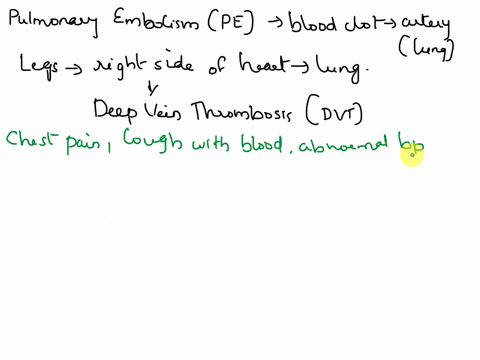 Pulmonary Embolism (PE) → blood clot → artery
(lung)
Legs → right side of heart → lung.
↓
Deep Vein Thrombosis (DVT)
Chest pain, Cough with blood, abnormal bp